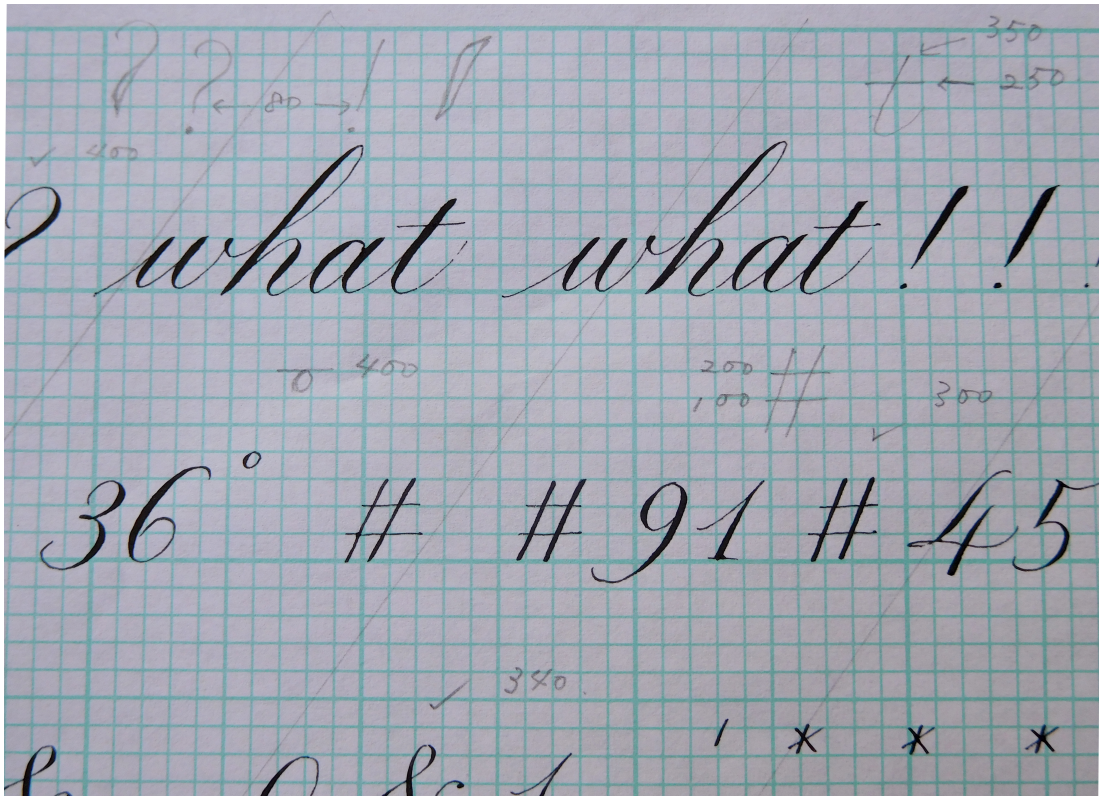 ? ? 80 ! 350
250
400
? what what ! ! !
400 200 # 300
100
36° # # 91 # 45
340
' * * *
&